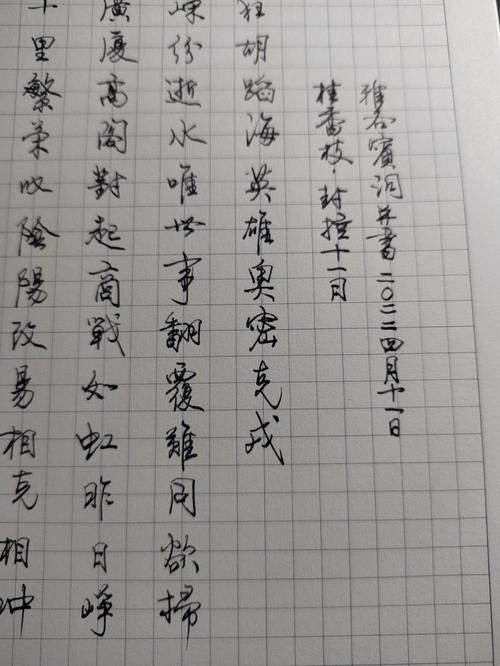 十里繁荣收陰陽改易相克相冲
廣廈高阁對起商戰如虹昨日崢
嵘份逝水唯世事翻覆難同欲掃
狂胡蹈海英雄奥密克戎
桂香枝·封控十一日
雅石賓詞并書二〇二二四月十一日